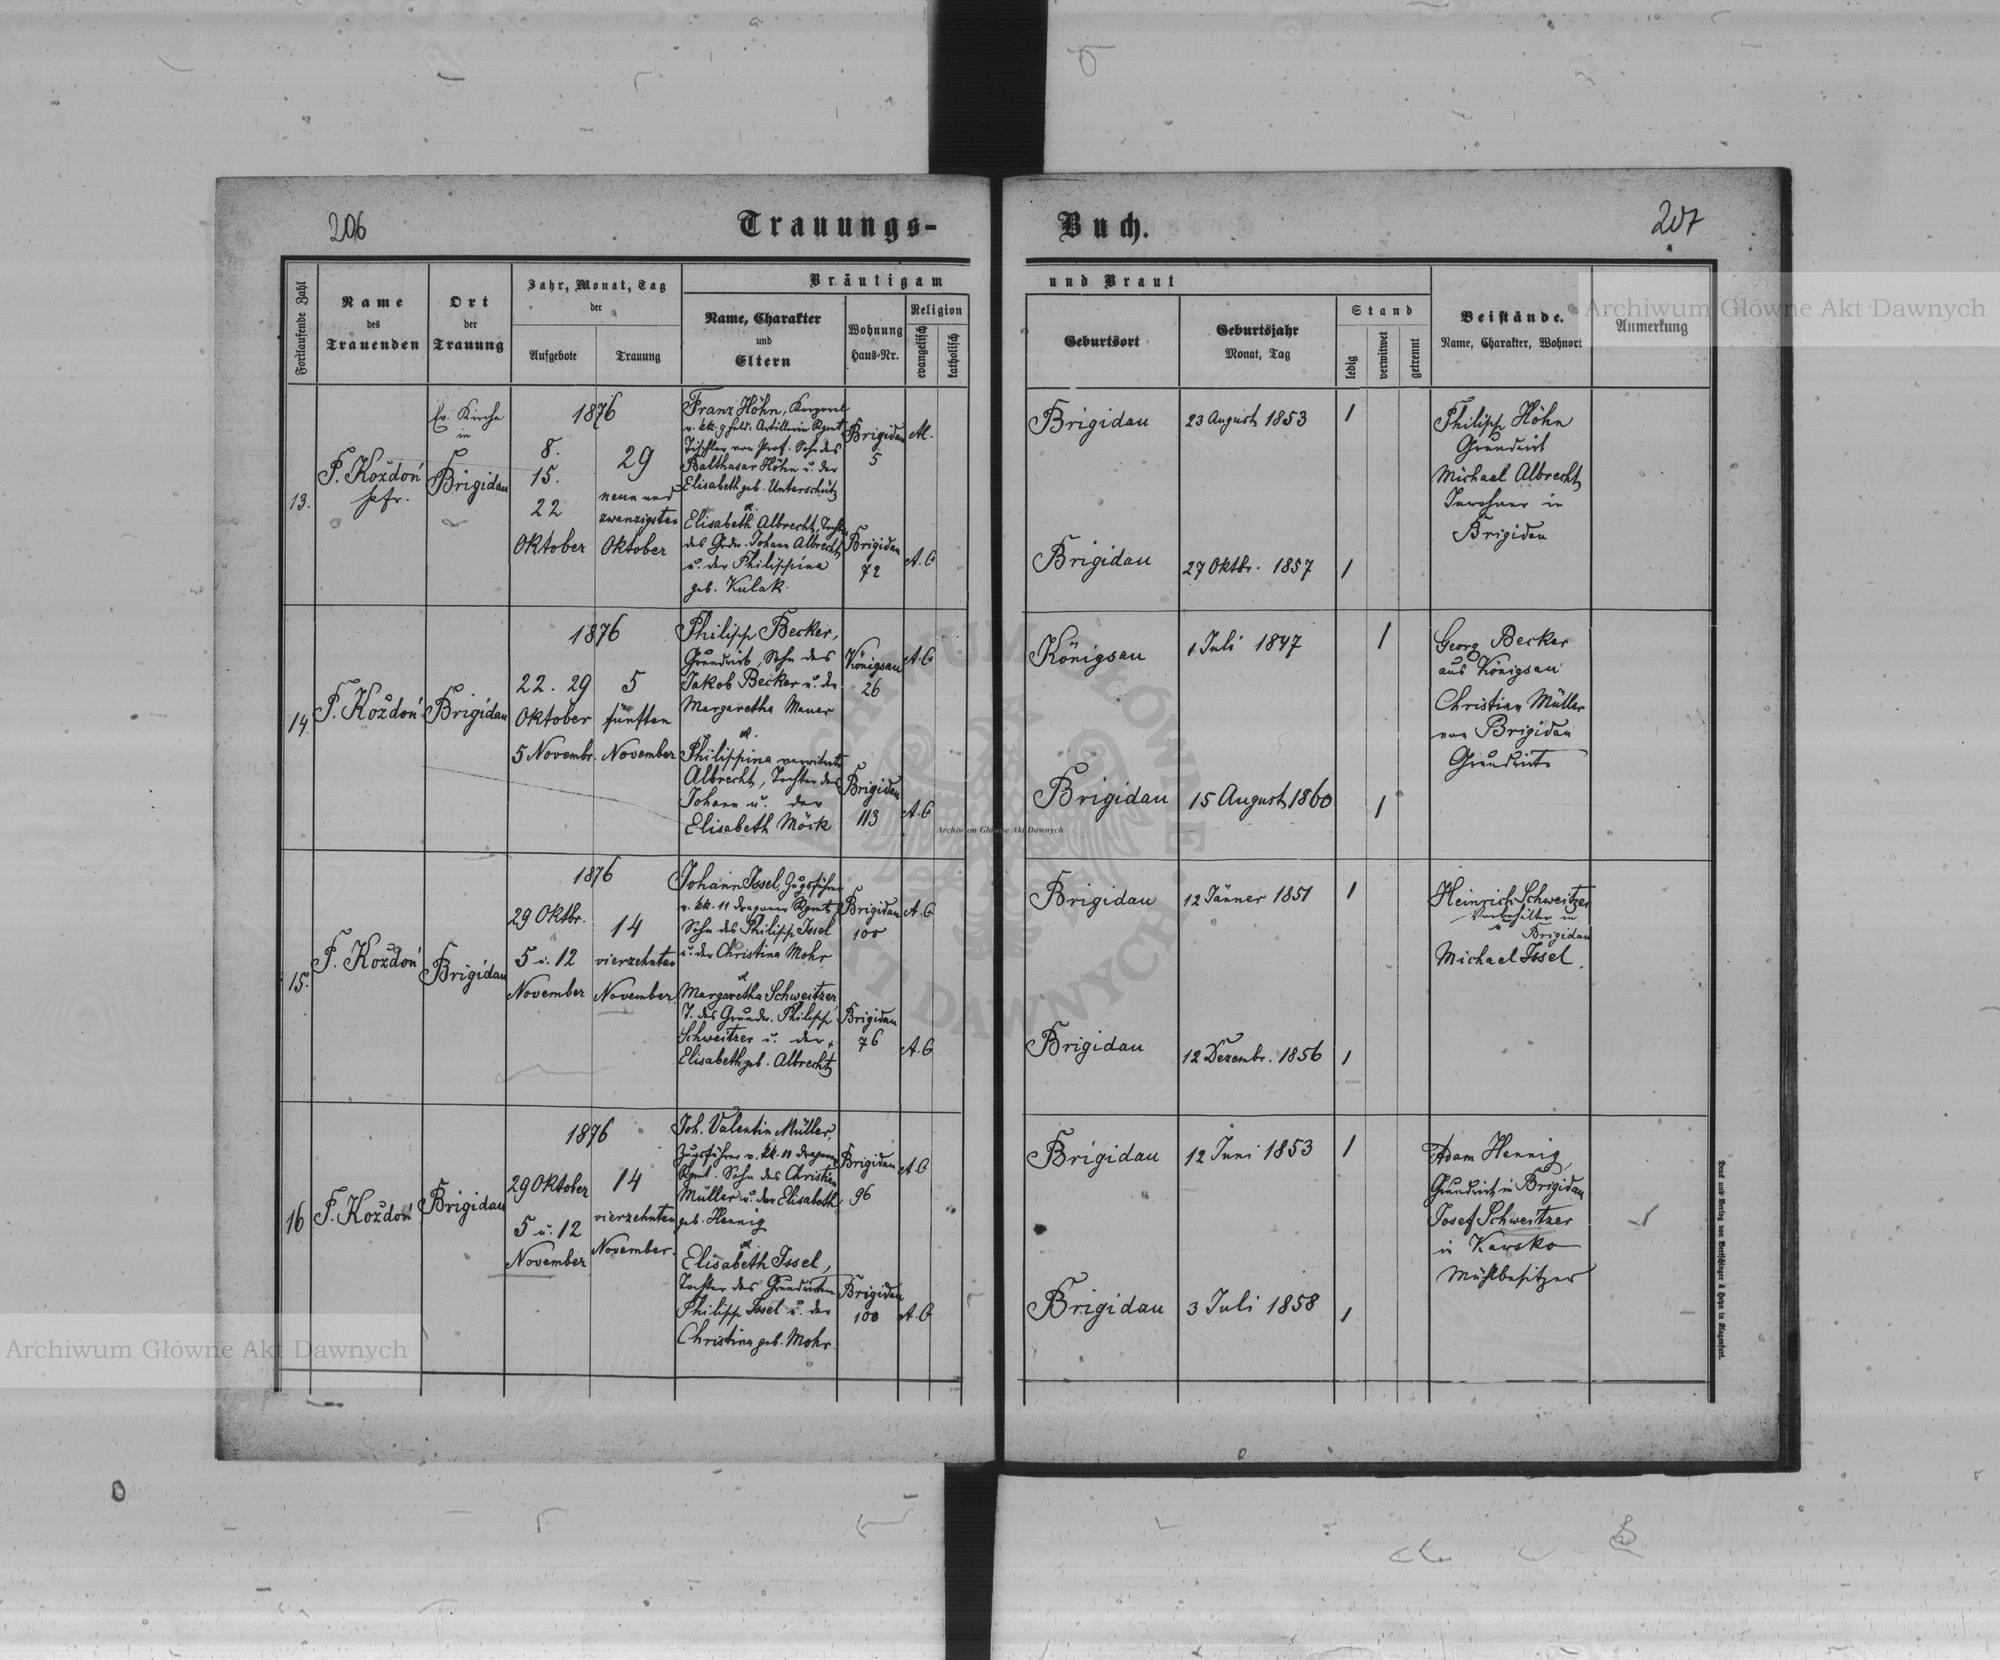 206
Trauungs-
Buch.
207
Fortlaufende Zahl
Name
des
Trauenden
Ort
der
Trauung
Jahr, Monat, Tag
der
Aufgebote
Trauung
Bräutigam
Name, Charakter
und
Eltern
Wohnung
Haus-Nr.
Religion
evangelisch
katholisch
und Braut
Geburtsort
Geburtsjahr
Monat, Tag
Stand
ledig
verwitwet
getrennt
Beistände.
Name, Charakter, Wohnort
Anmerkung
13.
F. Kożdoń
Ev. Kirche
in
Brigidau
1876
8.
15.
22
Oktober
29
neun und
zwanzigsten
Oktober
Franz Höhn, Korporal
v. kk. 9 Feld. Artillerie Rgmt
Tischler von Prof. Sohn des
Balthasar Höhn u. der
Elisabeth geb. Unterschütz
u.
Elisabeth Albrecht, Tocht.
des Grdw. Johann Albrecht
u. der Philippina
geb. Kulak.
Brigidau
5
Brigidau
72
A. C
Brigidau
23 August 1853
1
Brigidau
27 Oktbr. 1857
1
Philipp Höhn
Grundwirt
Michael Albrecht
Inwohner in
Brigidau
14.
F. Kożdoń
Brigidau
1876
22. 29
Oktober
5 Novembr.
5
fünften
November
Philipp Becker,
Grundwirt, Sohn des
Jakob Becker u. der
Margaretha Mauer
u.
Philippina verwitwete
Albrecht, Tochter des
Johann u. der
Elisabeth Möck
Königsau
26
A. C
Brigidau
113
A. C
Königsau
1 Juli 1847
1
Brigidau
15 August 1860
1
Georg Becker
aus Königsau
Christian Müller
von Brigidau
Grundwirte
15.
F. Kożdoń
Brigidau
1876
29 Oktbr.
5 u. 12
November
14
vierzehnten
November.
Johann Issel, Zugsführer
v. kk. 11 Dragoner Rgmt
Sohn des Philipp Issel
u. der Christina Mohr
u.
Margaretha Schweitzer,
T. des Grundw. Philipp
Schweitzer u. der
Elisabeth geb. Albrecht
Brigidau
100
A. C
Brigidau
76
A. C
Brigidau
12 Jänner 1851
1
Brigidau
12 Dezembr. 1856
1
Heinrich Schweitzer
in
Brigidau
Michael Issel.
16
F. Kożdoń
Brigidau
1876
29 Oktober
5 u. 12
November
14
vierzehnten
November.
Joh. Valentin Müller,
Zugsführer v. kk. 11 Dragoner
Rgmt. Sohn des Christian
Müller u. der Elisabeth
geb. Hennig
u.
Elisabeth Issel,
Tochter des Grundwirten
Philipp Issel u. der
Christina geb. Mohr.
Brigidau
96
A. C
Brigidau
100
A. C
Brigidau
12 Juni 1853
1
Brigidau
3 Juli 1858
1
Adam Hennig,
Grundwirt in Brigidau
Josef Schweitzer
in Karsko
Mühlbesitzer
Archiwum Główne Akt Dawnych
Archiwum Główne Akt Dawnych
Archiwum Główne Akt Dawnych
ARCHIWUM GŁÓWNE AKT DAWNYCH